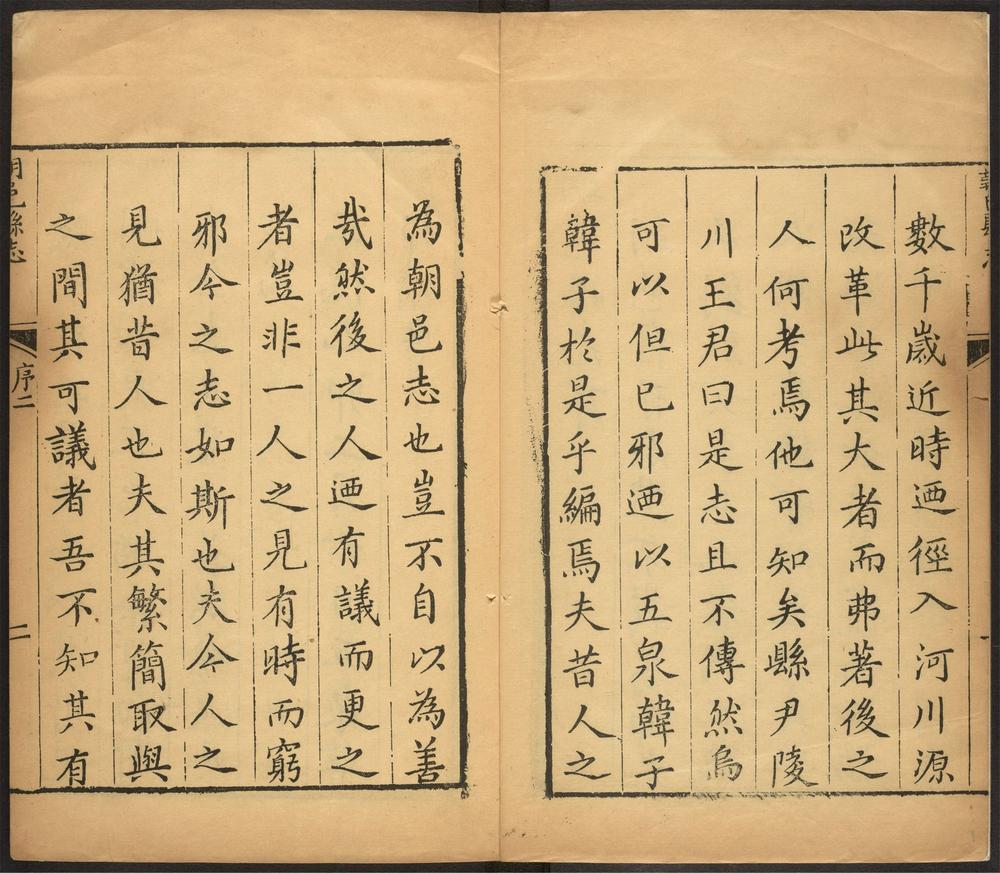 數千歲近時迺徑入河川源
改革此其大者而弗著後之
人何考焉他可知矣縣尹陵
川王君曰是志且不傳然烏
可以但已邪迺以五泉韓子
韓子於是乎編焉夫昔人之
為朝邑志也豈不自以為善
哉然後之人迺有議而更之
者豈非一人之見有時而窮
邪今之志如斯也夫今人之
見猶昔人也夫其繁簡取與
之間其可議者吾不知其有
朝邑縣志
序二
二